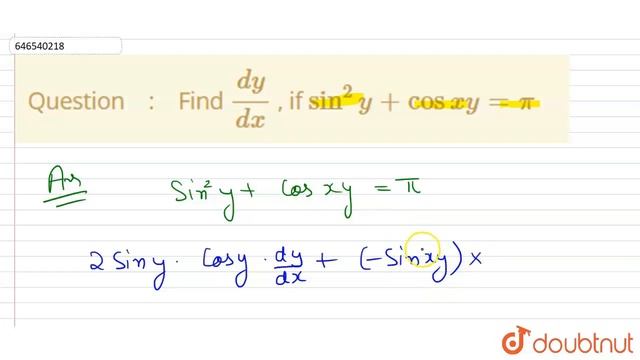 646540218
Question : Find dy/dx , if sin² y + cos xy = π
Ans Sin² y + Cos xy = π
2 Sin y · Cos y · dy/dx + (-Sin xy) ×
doubtnut